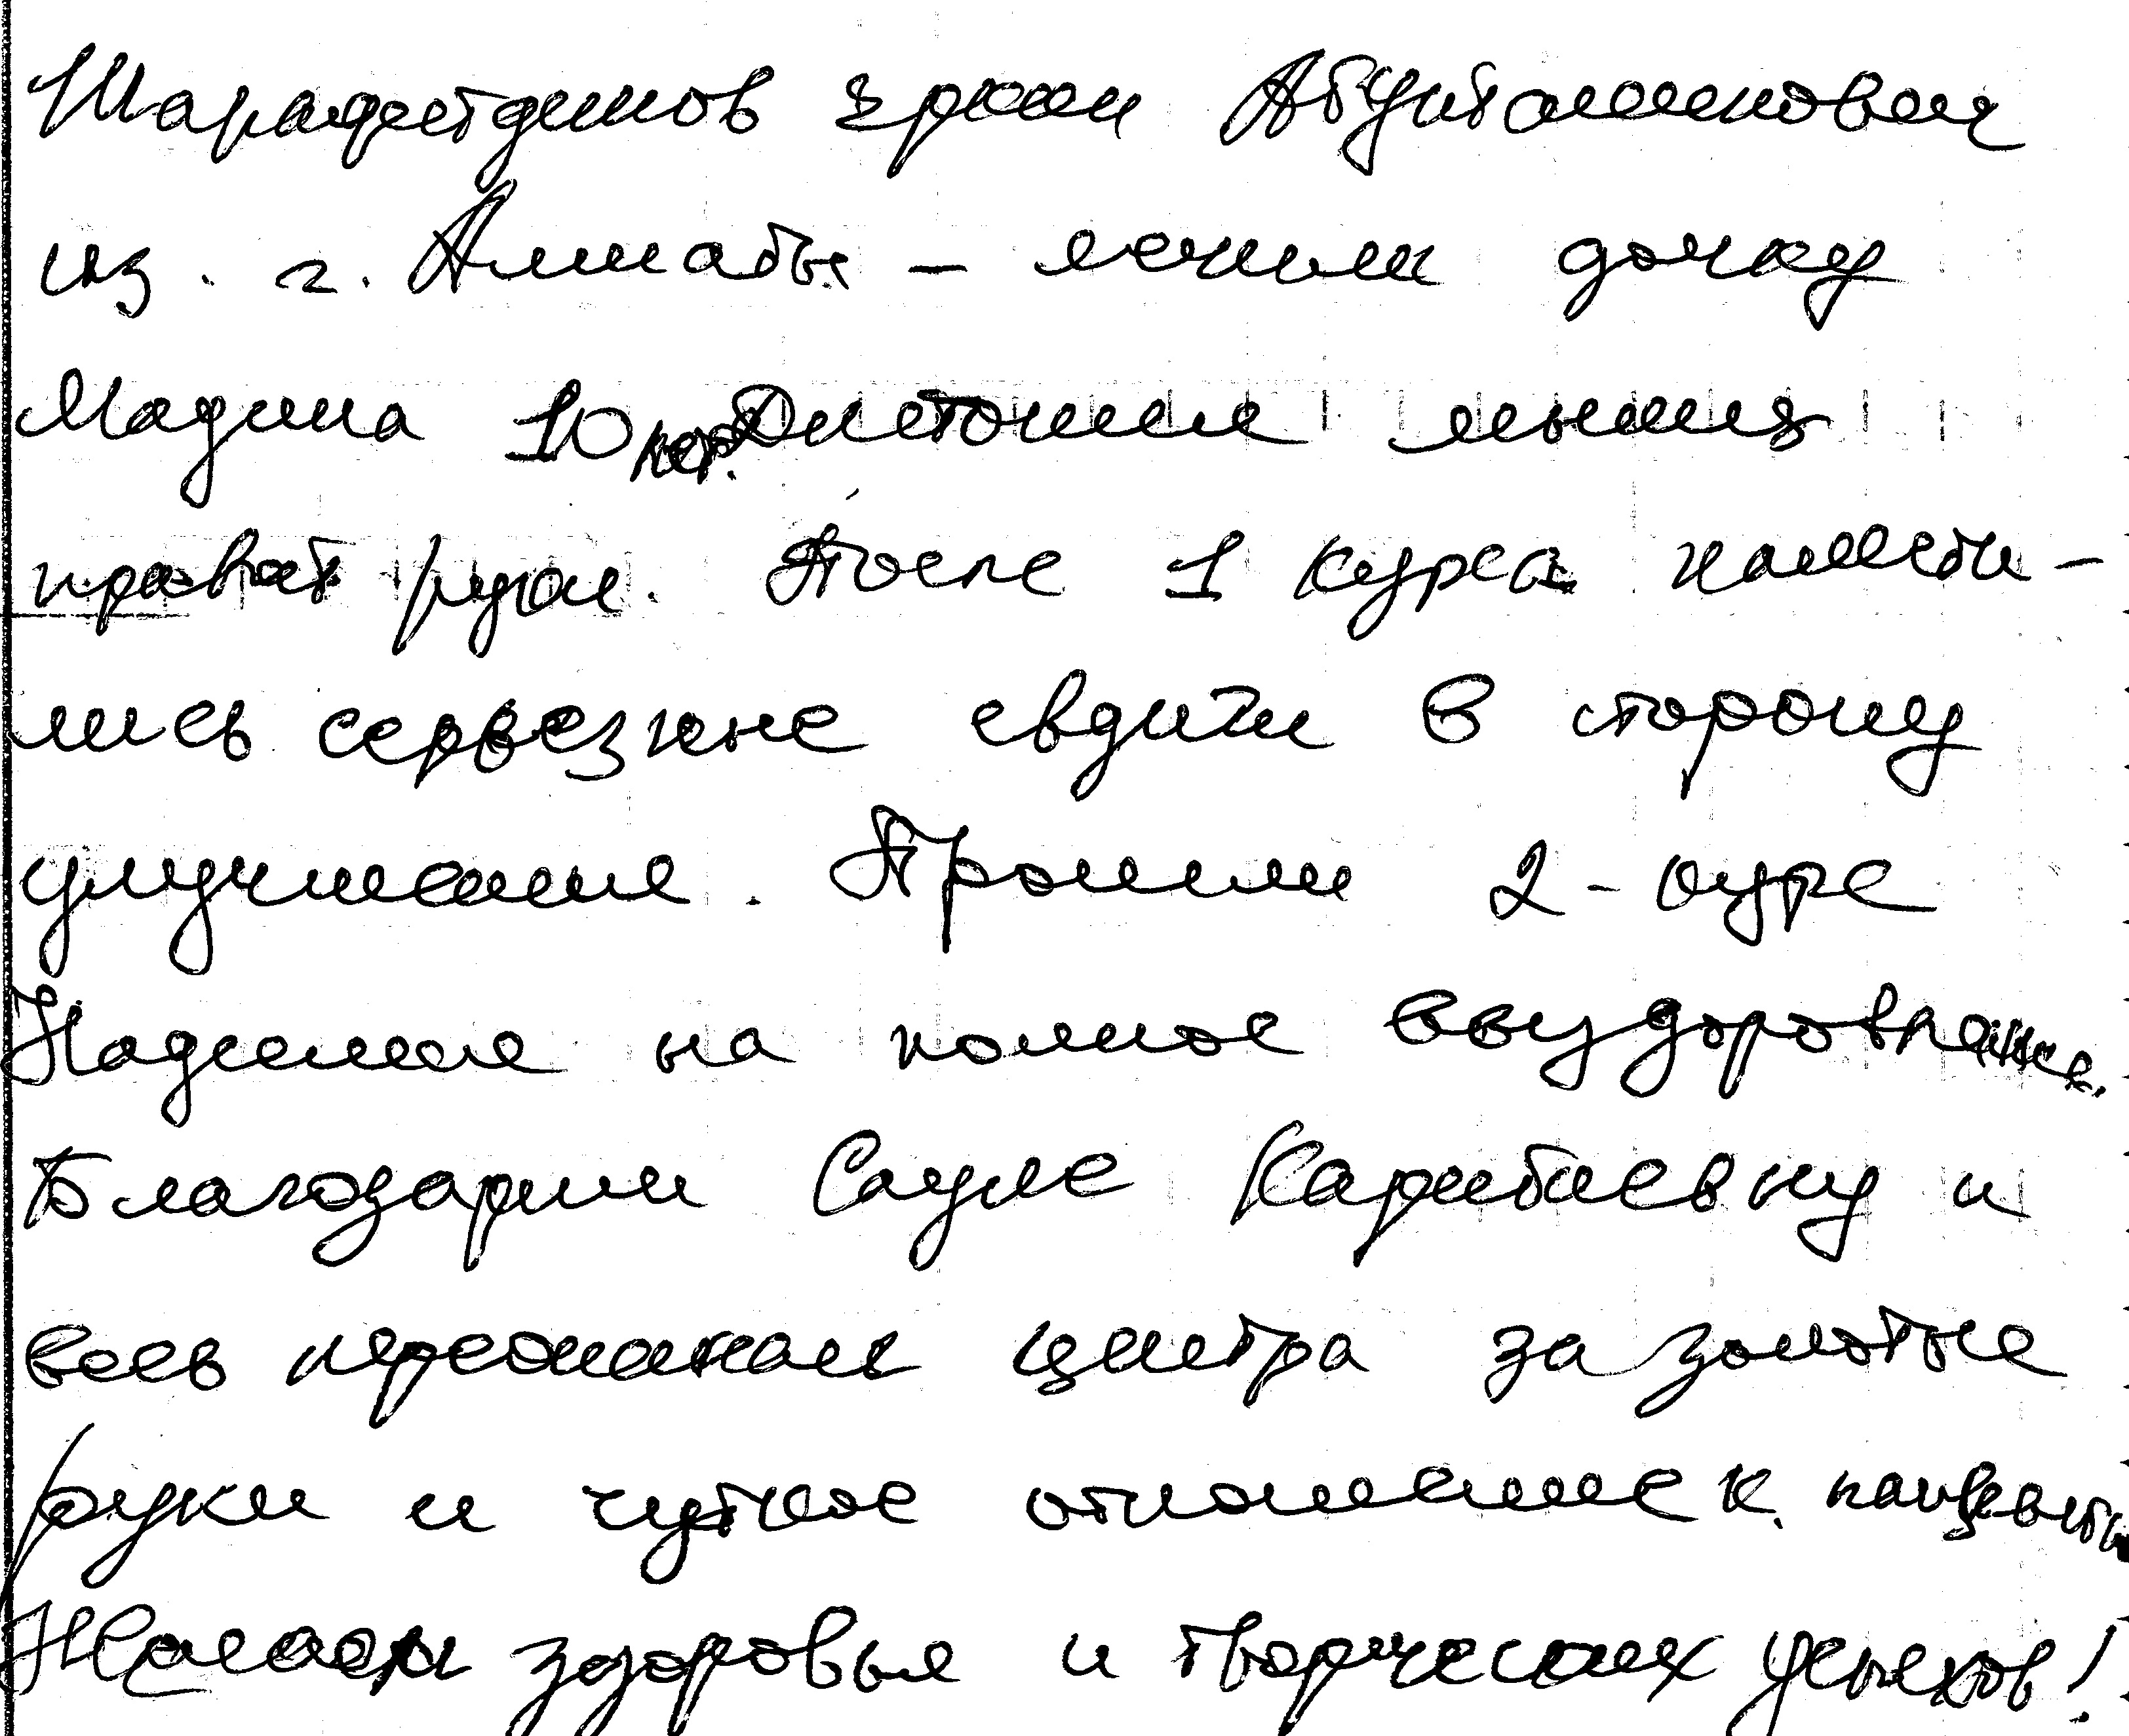 Шарафетдинов Эркин
из. г. Алматы – лечим дочку
Мадина 10 Дистония мышц
правая рука. После 1 курса намети-
лись серьезные сдвиги в сторону
улучшения. Прошли 2-
Надеемся на полное выздоровление.
Благодарим Сауле Карибаевну и
весь персонал центра за золотые
руки и чуткое отношение к.
Желаем здоровья и творческих успехов!